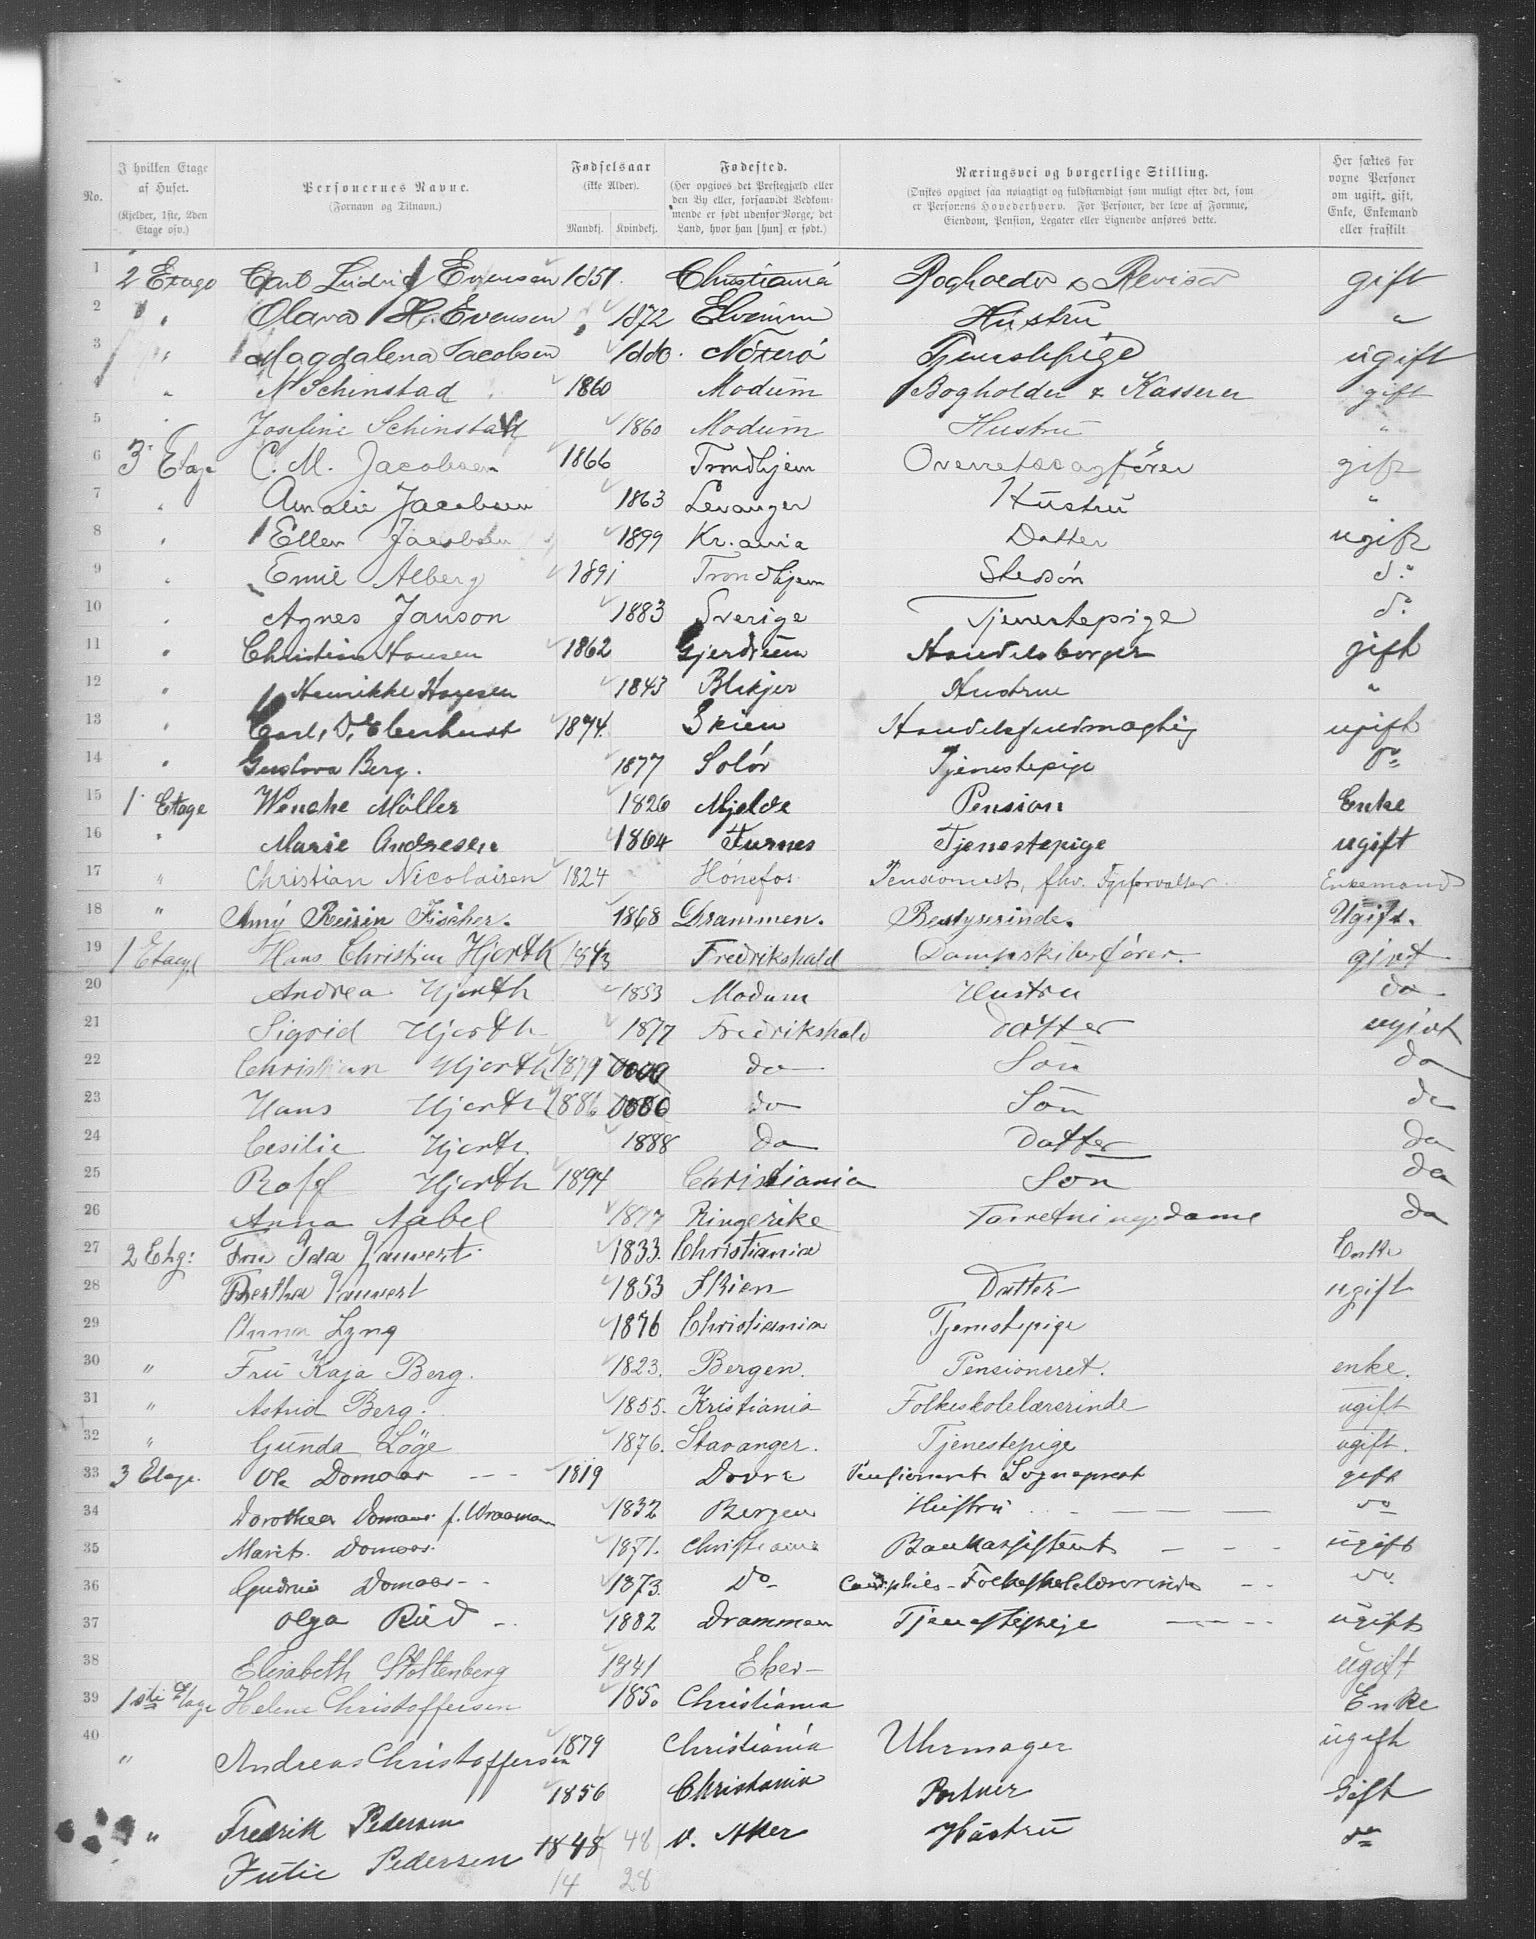 No.
I hvilken Etage af Huset. (Kjelder, 1ste, 2den Etage osv.)
Personernes Navne. (Fornavn og Tilnavn.)
Fødselsaar (ikke Alder). Mandkj. Kvindekj.
Fødested. (Her opgives det Prestegjæld eller den By eller, forsaavidt Vedkommende er født udenfor Norge, det Land, hvor han [hun] er født.)
Næringsvei og borgerlige Stilling. (Ønskes opgivet saa nøiagtigt og fuldstændigt som muligt efter det, som er Personens Hovederhverv. For Personer, der leve af Formue, Eiendom, Pension, Legater eller Lignende anføres dette.
Her sættes for vorne Personer om ugift, gift, Enke, Enkemand eller fraskilt
1 2 Etage Carl Ludvig Evensen 1851. Christiania Bogholder & Revisor gift
2 " Olava H. Evensen 1872 Elverum Hustru "
3 " Magdalena Jacobsen 1880. Nøterø Tjenestepige ugift
4 " N Schinstad 1860 Modum Bogholder & Kasserer gift
5 " Josefine Schinstad 1860 Modum Hustru "
6 3 Etage C. M. Jacobsen 1866 Trondhjem Overretssagfører gift
7 " Amalie Jacobsen 1863 Levanger Hustru "
8 " Ellen Jacobsen 1899 Kr.ania Datter ugift
9 " Emil Alberg 1891 Trondhjem Stedsøn do
10 " Agnes Janson 1883 Sverige Tjenestepige do
11 " Christian Hansen 1862 Gjerdrum Handelsborger gift
12 " Henrikke Hansen 1843 Blakjer Hustrue "
13 " Carl, D, Eberhardt 1874. Skien Handelsfuldmægtig ugift
14 " Gustava Berg. 1877 Solør Tjenestepige do
15 1 Etage Wenche Møller 1826 Mjelde Pension Enke
16 " Marie Andresen 1864 Furnes Tjenestepige ugift
17 " Christian Nicolaisen 1824 Hönefos Pensionist, fhv. Fyrforvalter. Enkemand
18 " Amy Fischer. 1868 Drammen. Bestyrerinde. Ugift.
19 1 Etage Hans Christian Hjorth 1843 Fredrikshald Dampskibsfører. givt
20 Andrea Hjorth 1853 Modum Hustru do
21 Sigrid Hjorth 1877 Fredrikshald Datter ugivt
22 Christian Hjorth 1879 do Søn do
23 Hans Hjorth 1886 1886 do Søn do
24 Cesilie Hjorth 1888 do Datter do
25 Rolf Hjorth 1894 Christiania Søn do
26 Anna Nabel 1877 Ringerike Forretningsdame do
27 2 Etg: Fru Ida Vauvert. 1833. Christiania Enke
28 Bertha Vauvert 1853 Skien Datter ugift
29 Anna Lyng 1876 Christiania Tjenestepige
30 " Fru Kaja Berg. 1823. Bergen. Pensioneret. enke.
31 " Astrid Berg. 1855. Kristiania Folkeskolelærerinde ugift
32 " Gunda Løge 1876. Stavanger. Tjenestepige ugift.
33 3 Etage. Ole Domaas - - - 1819 Dovre Pensioneret Sogneprest gift
34 Dorothea Domaas f. Vraaman 1832 Bergen Hustru do
35 Marit. Domaas. 1871. Christiania Bankassistent - - - ugift
36 Gudrun Domaas - - 1873. Do Cand. philos - Folkeskolelærerinde - - do.
37 Olga Rud - . 1882 Drammen Tjenestepige - - - - ugift
38 Elisabeth Stoltenberg 1841 Eker - ugift
39 1ste Etage Helene Christoffersen 1850 Christiania Enke
40 " Andreas Christoffersen 1879 Christiania Uhrmager ugift
" Fredrik Pedersen 1856 Christiania Portner Gift
Julie Pedersen 1848 48 V. Aker Hustru do
14 28